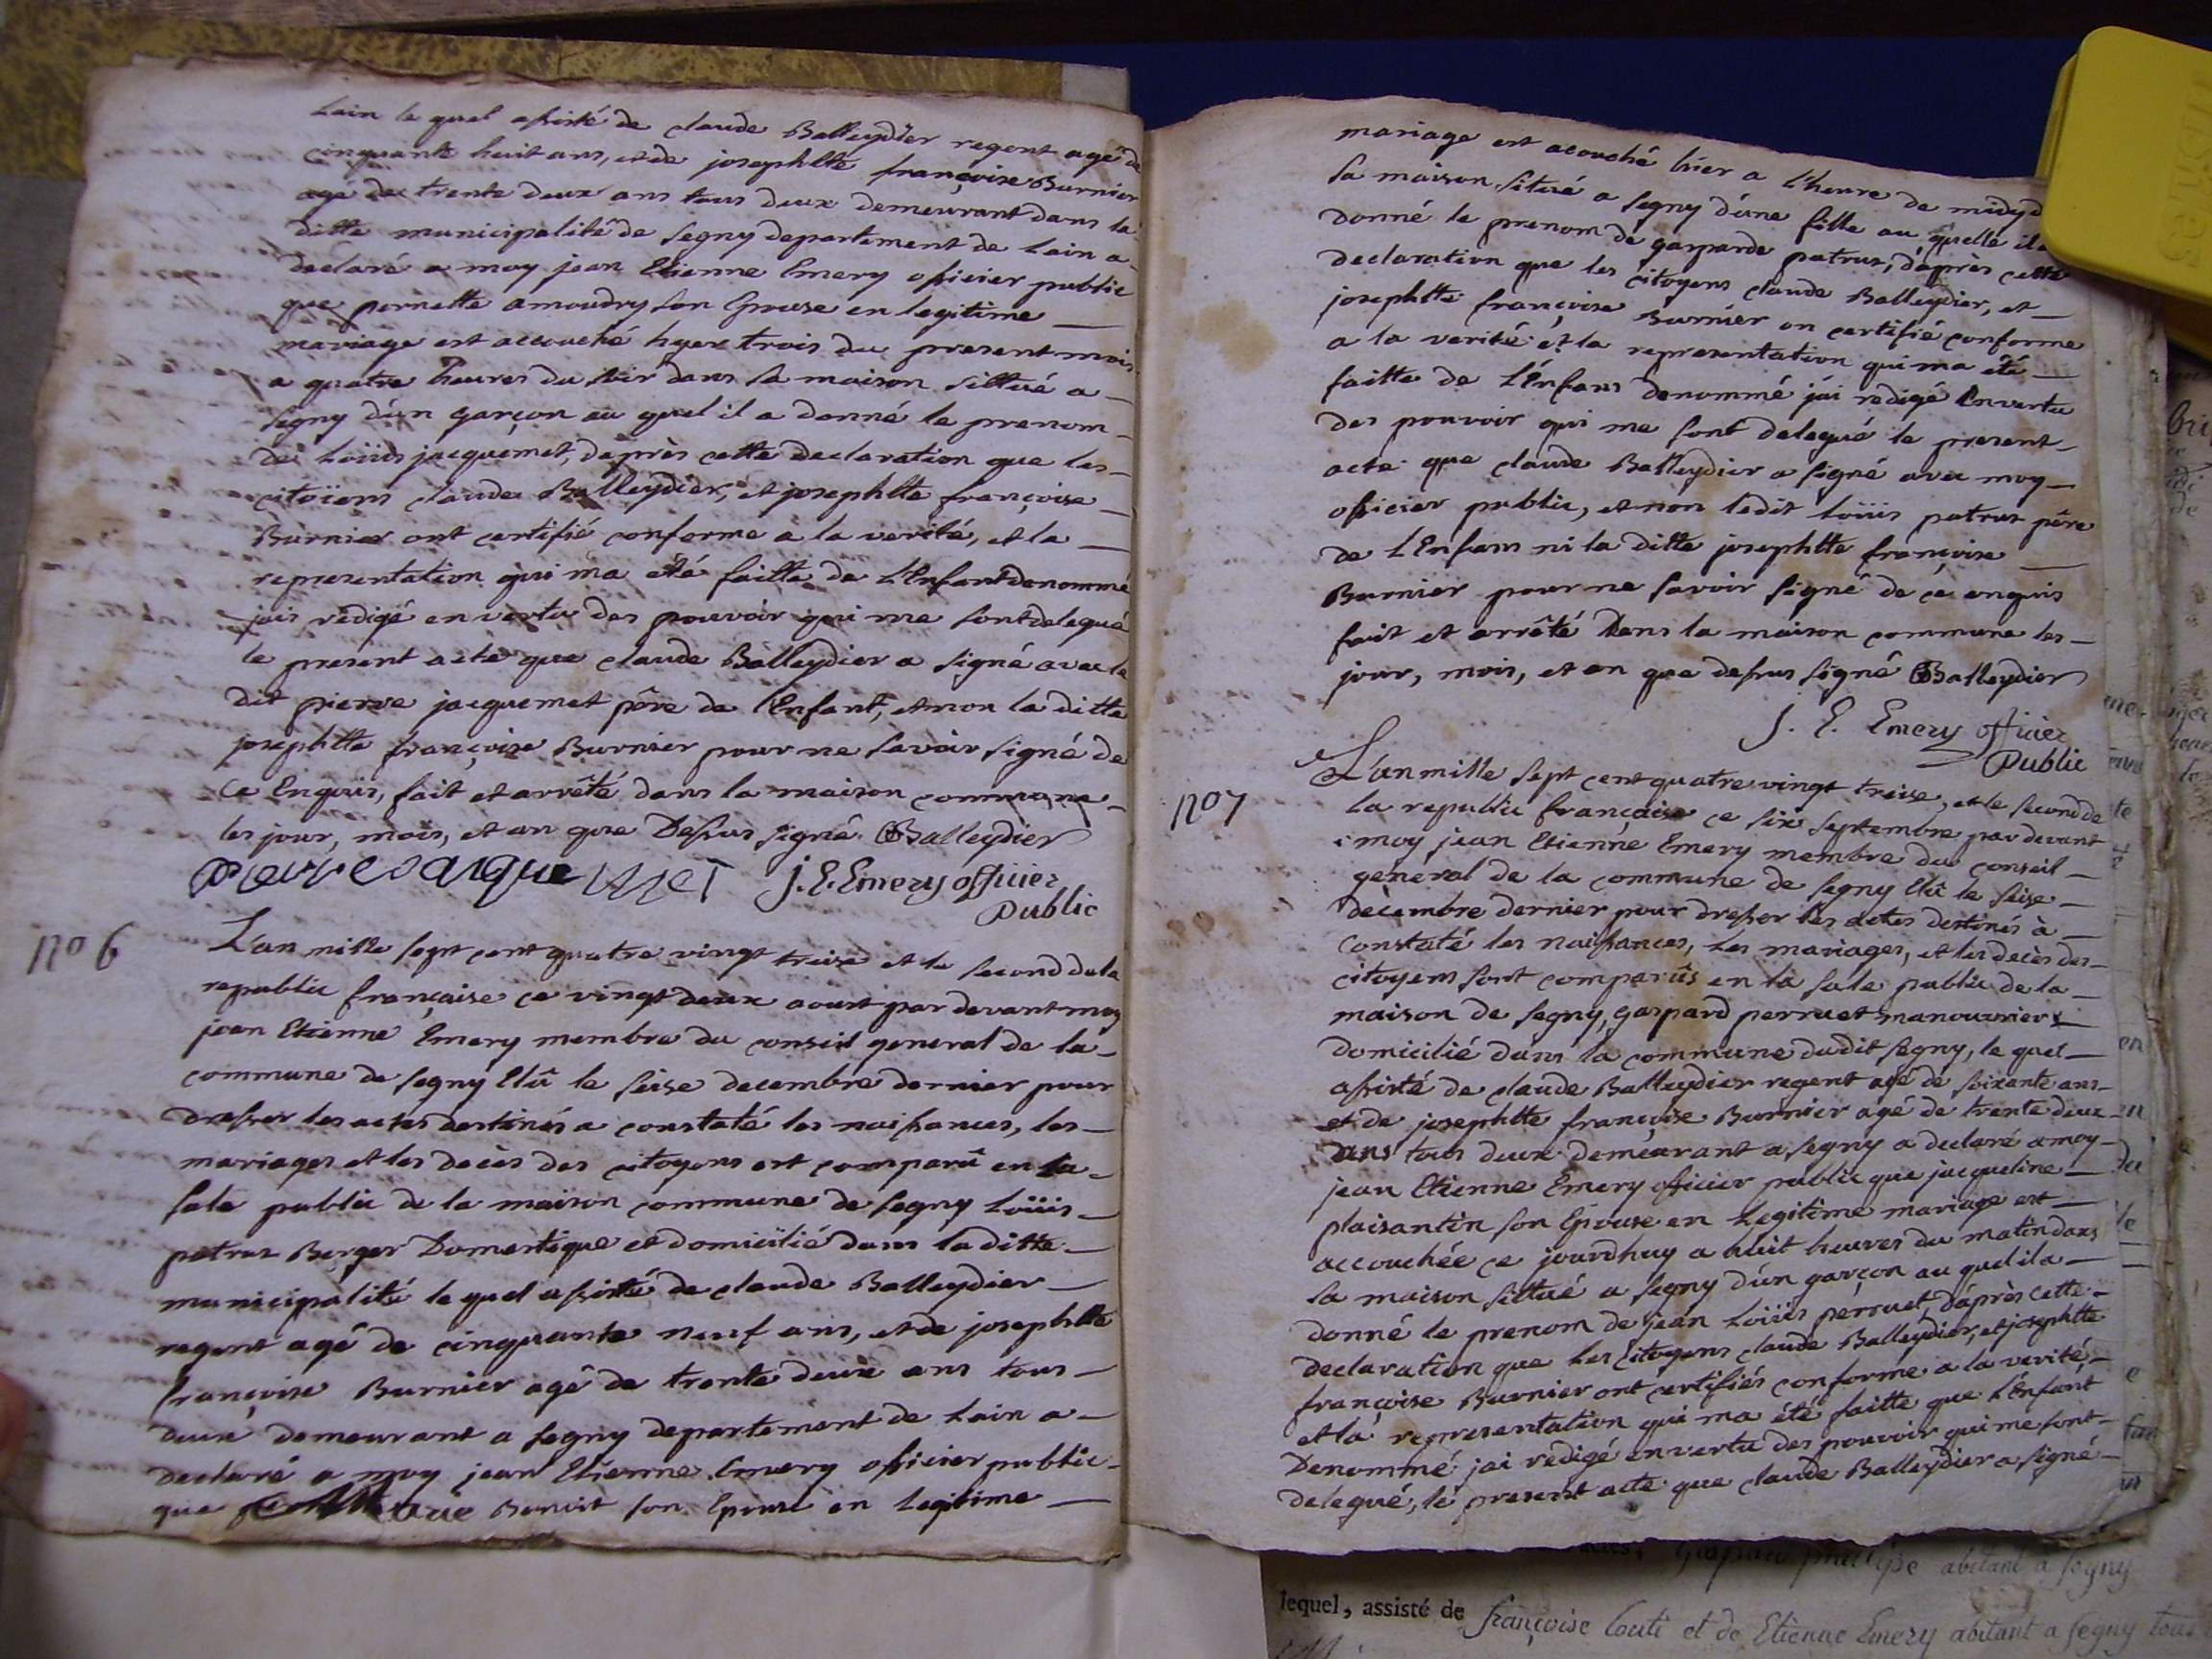 Lain le quel assisté de claude Balleydier regent agé de
cinquante huit ans, et de josephtte françoise Burnier
agé de trente deux ans tous deux demeurant dans la
ditte municipalité de segny departement de Lain a
declaré a moy jean Etienne Emery officier public
que pernette amoudry son Epouse en legitime
mariage est accouché hyer trois du present mois
a quatre heures du soir dans sa maison sittué a
segny d'ùn garçon au quel il a donné le prenom
de Loüis jacquemet, daprès cette declaration que les
citoïens claude Balleydier, et josephtte françoise
Burnier ont certifié conforme a la verité, et la
representation qui ma été faitte de L'Enfant denommé
jais redigé en vertu des pouvoir qui me sont delegué
le present acte que claude Balleydier a signé avec le
dit pierre jacquemet pêre de l'Enfant, et non la ditte
josephtte françoise Burnier pour ne savoir signé de
ce Enquis, fait et arrêté dans la maison commune
les jour, mois, et an que Dessus signé Balleydier
J. E. Emery officier
Public
no 6
L'an mille sept cent quatre vingt treize et le second de la
republic française ce vingt deux aoust par devant moy
jean Etienne Emery membre du conseil general de la
commune de segny Elû le seise decembre dernier pour
dresser les actes destinés a constaté les naissances, les
mariages et les decès des citoyens est comparû en la
sale public de la maison commune de segny Loüis
patrus Berger Domestique et domicilié dans la ditte
municipalité le quel assisté de claude Balleydier
regent agé de cinquante neuf ans, et de josephtte
françoise Burnier agé de trente deux ans tous
deux demeurant a segny departement de Lain a
declaré a moy jean Etienne Emery officier public
que Benoit son Epouse en legitime
mariage est acouché hier a L'heure de midy d
sa maison situé a segny d'une fille au quelle il a
donné le prenom de gasparde patrus, daprès cette
declaration que les citoyens claude Balleydier, et
josephtte françoise Burnier on certifié conforme
a la verité et la representation qui ma été
faitte de L'Enfans denommé j'ai redigé En vertu
des pouvoir qui me sont delegué le present
acte que claude Balleydier a signé avec moy
officier public, et non ledit Loüis patrus pêre
de L'Enfans ni la ditte josephtte françoise
Burnier pour ne savoir signé de ce enquis
fait et arrêté Dans la maison commune les
jour, mois, et an que dessus signé Balleydier
J. E. Emery officier
Public
no 7
L'an mille sept cent quatre vingt treise, et le second de
la republic française ce six septembre par devant
moy jean Etienne Emery membre du conseil
general de la commune de segny Elû le seise
decembre dernier pour dresser les actes destinés à
constaté les naissances, les mariages, et les decès des
citoyens sont comparûs en la sale public de la
maison de segny, gaspard perruet manouvrier
domicilié dans la commune dudit segny, le quel
assisté de claude Balleydier regent agé de soixante ans
et de josephtte françoise Burnier agé de trente deux
ans tous deux demeurant a segny a declaré a moy
jean Etienne Emery officier public que jacqueline
plaisantin son Epouse en Legitime mariage est
accouchée ce jourdhuy a huit heures du matin dans
sa maison sittué a segny d'ùn garçon au quel il a
donné le prenom de jean Loüis perruet, d'après cette
declaration que les citoyens claude Balleydier, et josephtte
françoise Burnier ont certifiés conforme a la verité
et la representation qui ma été faitte que L'Enfant
Denommé jai redigé en vertu des pouvoir qui me sont
delegué, le present acte que claude Balleydier a signé
abitant a segny
lequel, assisté de françoise et de Etienne Emery abitant a segny tous